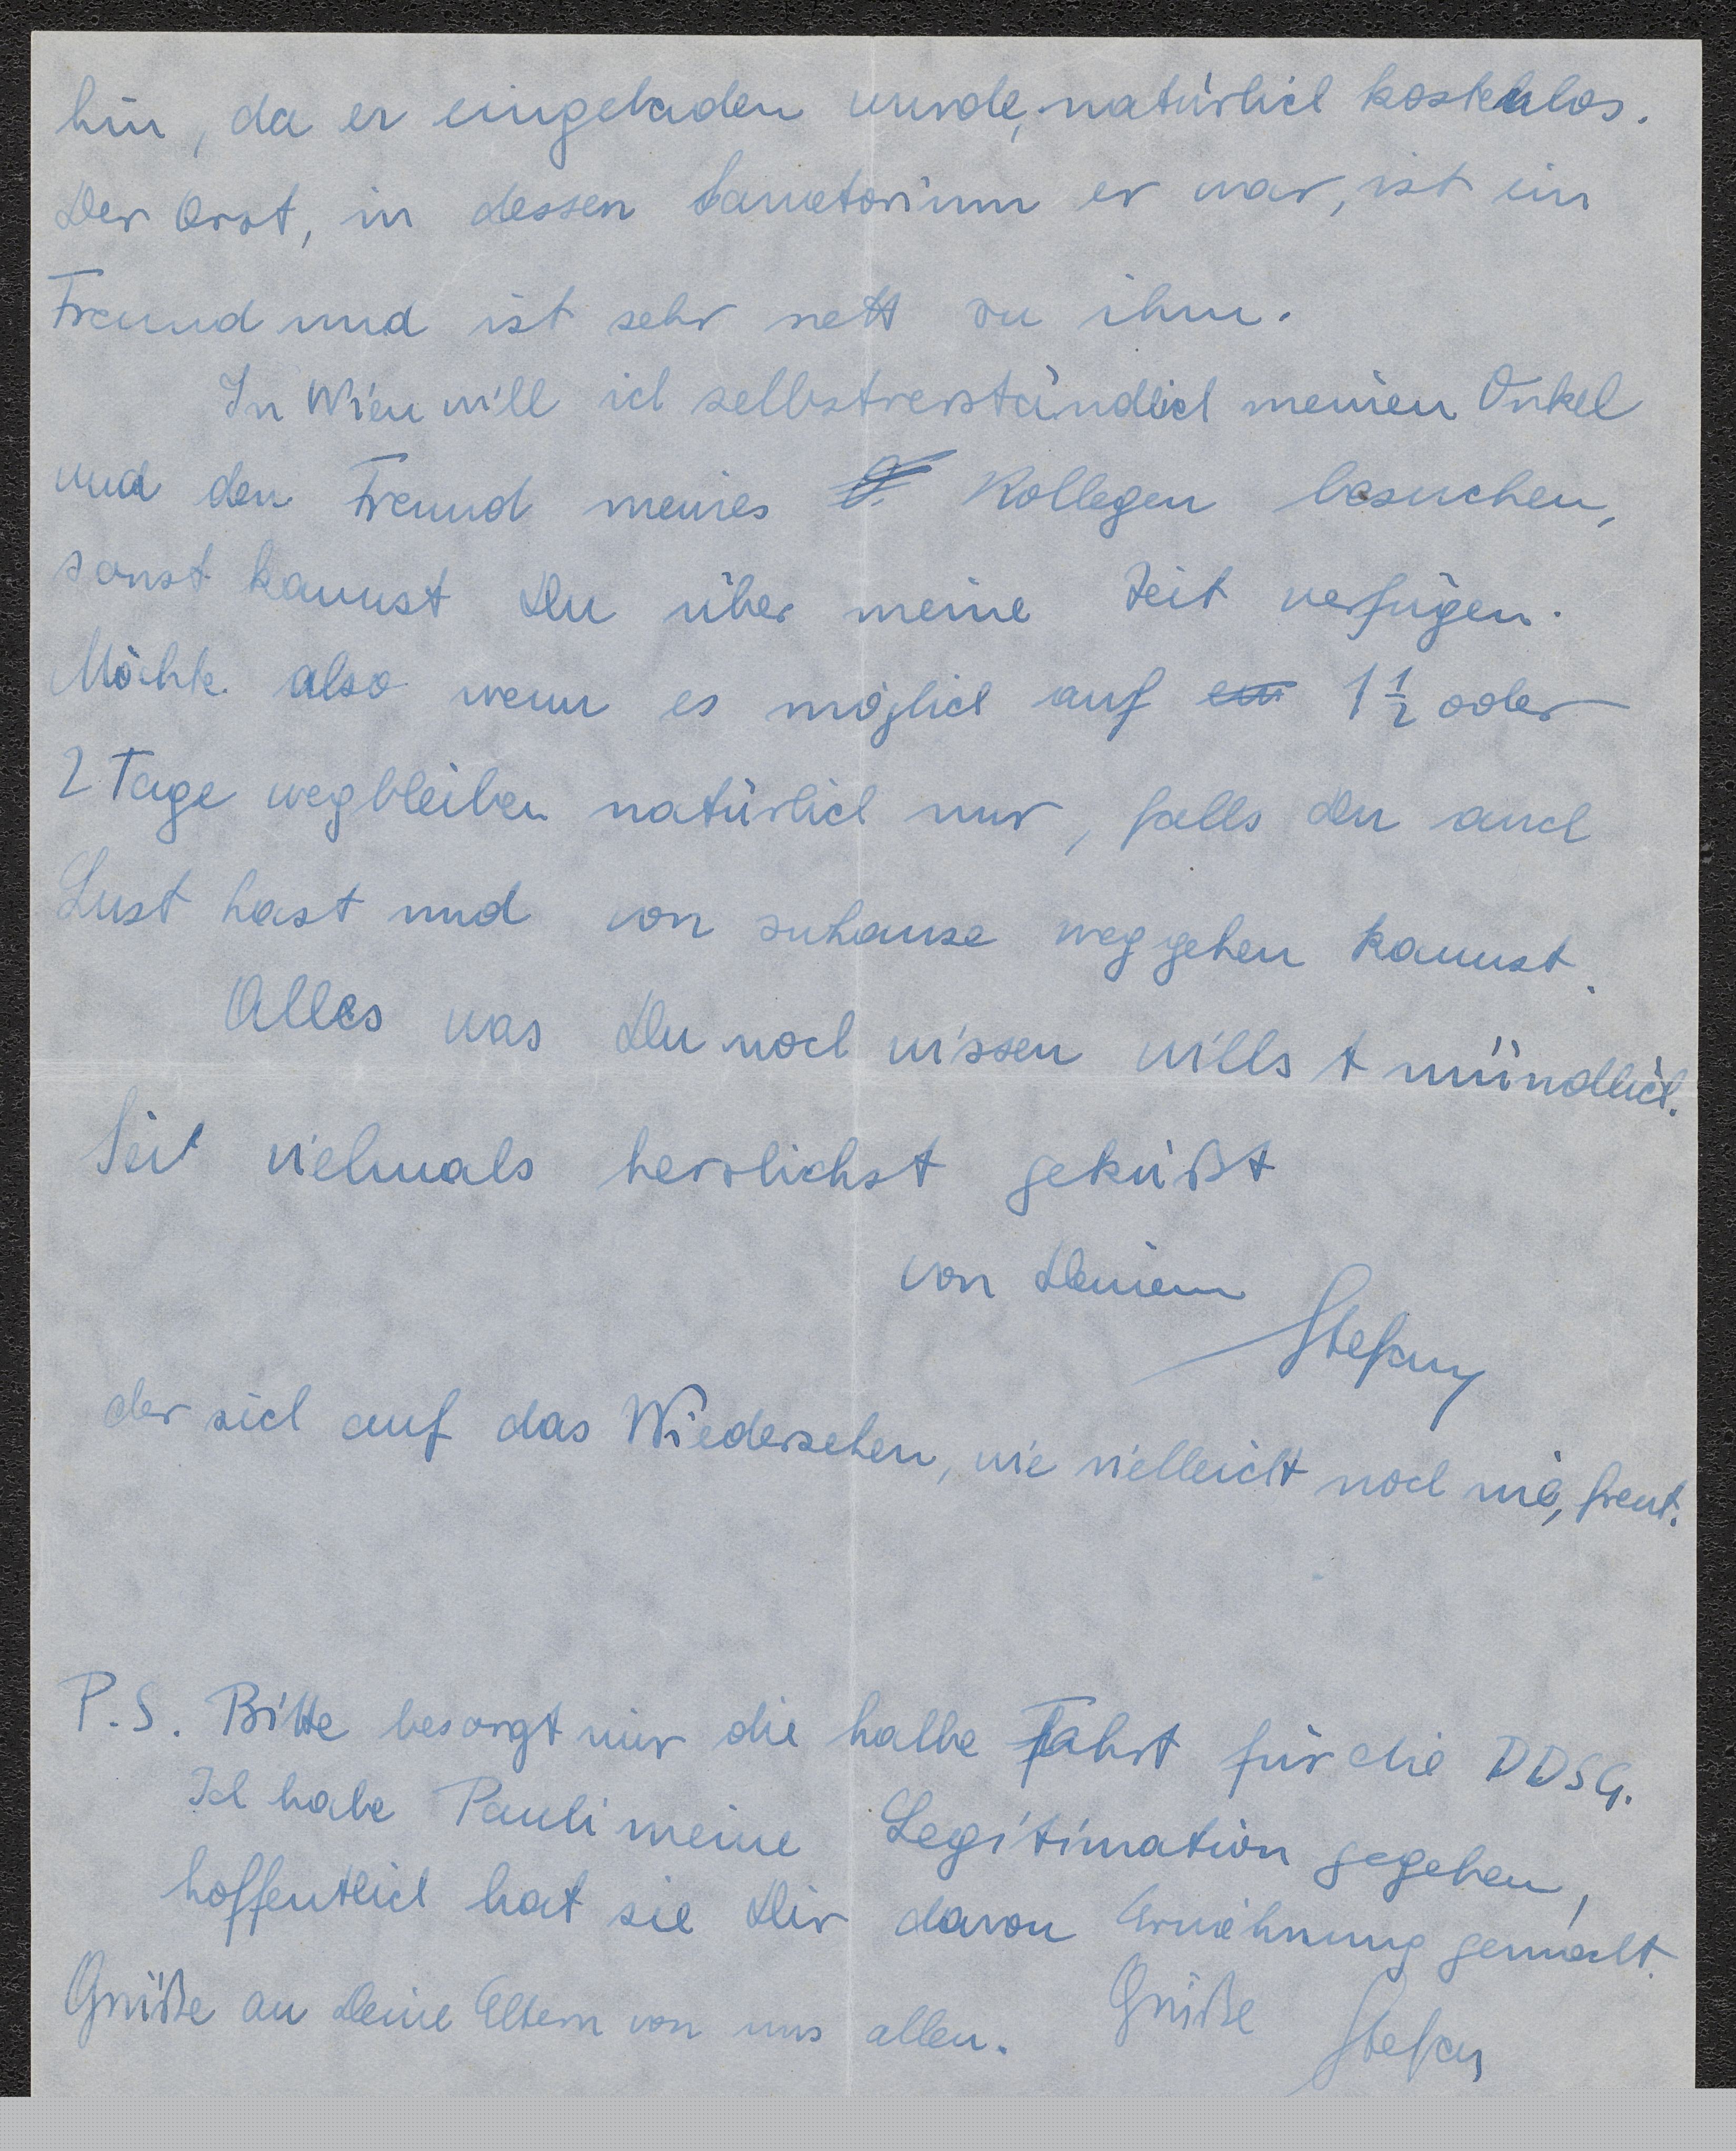 hin, da er eingeladen wurde, natürlich kostenlos.
Der Arzt, in dessen Sanatorium er war, ist ein
Freund und ist sehr nett zu ihm.
In Wien will ich selbstverständlich meinen Onkel
und den Freund meines Kollegen besuchen,
sonst kannst Du über meine Zeit verfügen.
Möchte also wenn es möglich auf ein 1 1/2 oder
2 Tage wegbleiben natürlich nur, falls Du auch
Lust hast und von zuhause weggehen kannst.
Alles was Du noch wissen willst mündlich.
Sei vielmals herzlichst geküßt
von Deinem
Stefan
der sich auf das Wiedersehen, wie vielleicht noch nie, freut.
P.S. Bitte besorgt mir die halbe Fahrt für die DDSG.
Ich habe Pauli meine Legitimation gegeben,
hoffentlich hat sie Dir davon Erwähnung gemacht.
Grüße an Deine Eltern von uns allen. Grüße Stefan